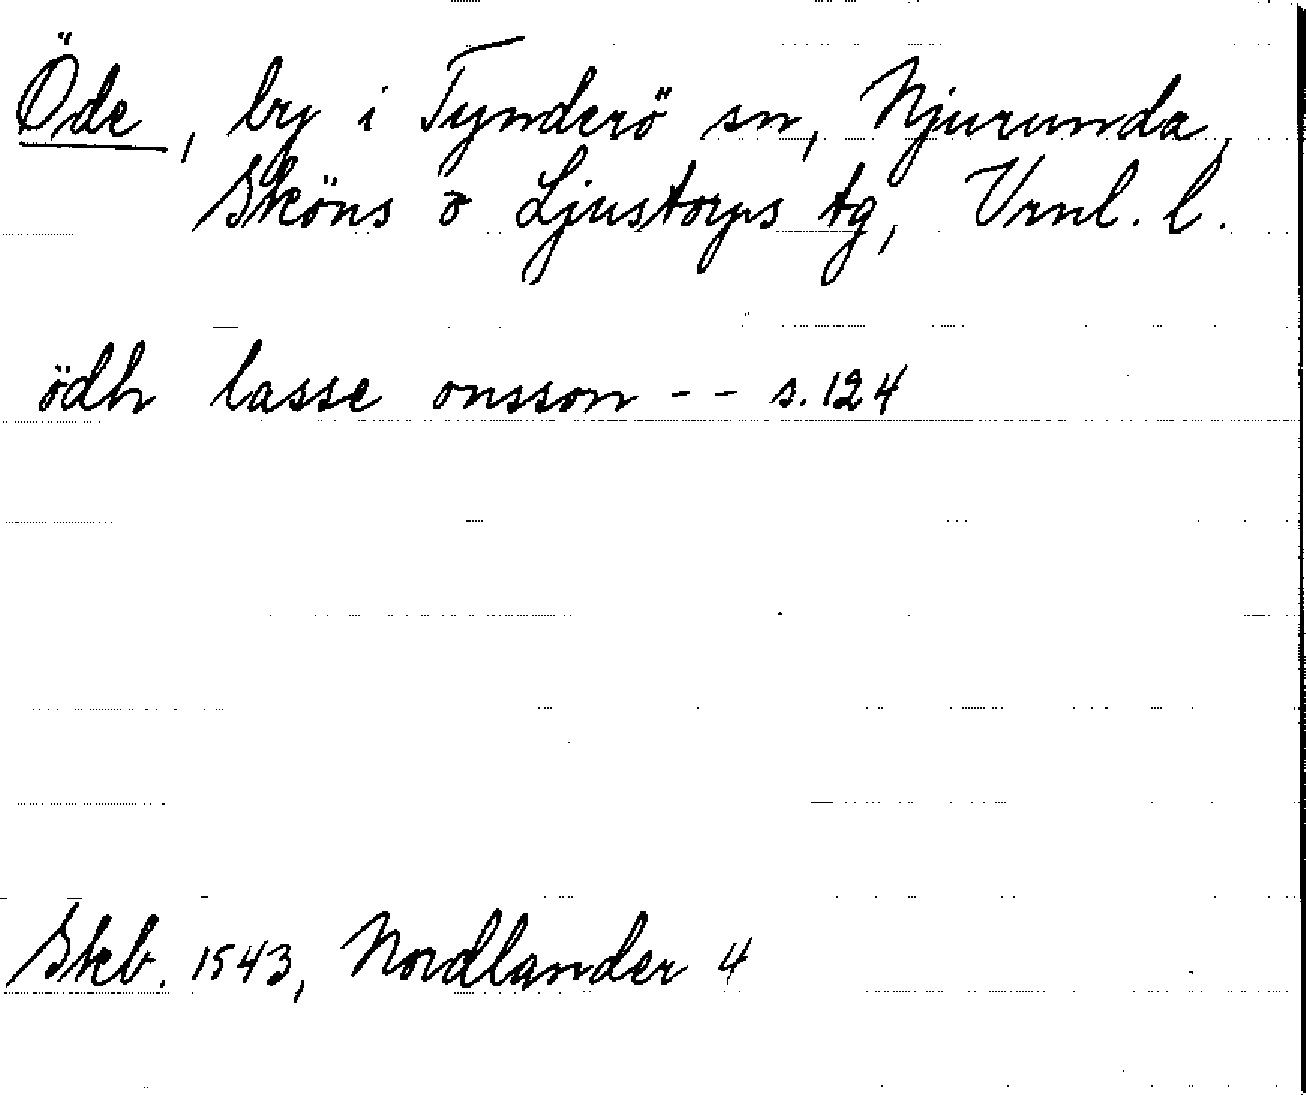 Öde, by i Tynderö sn, Njurunda,
Sköns o Ljustorps tg, Vrnl. l.
ödh lasse onsson - - s. 124
Skb. 1543, Nordlander 4